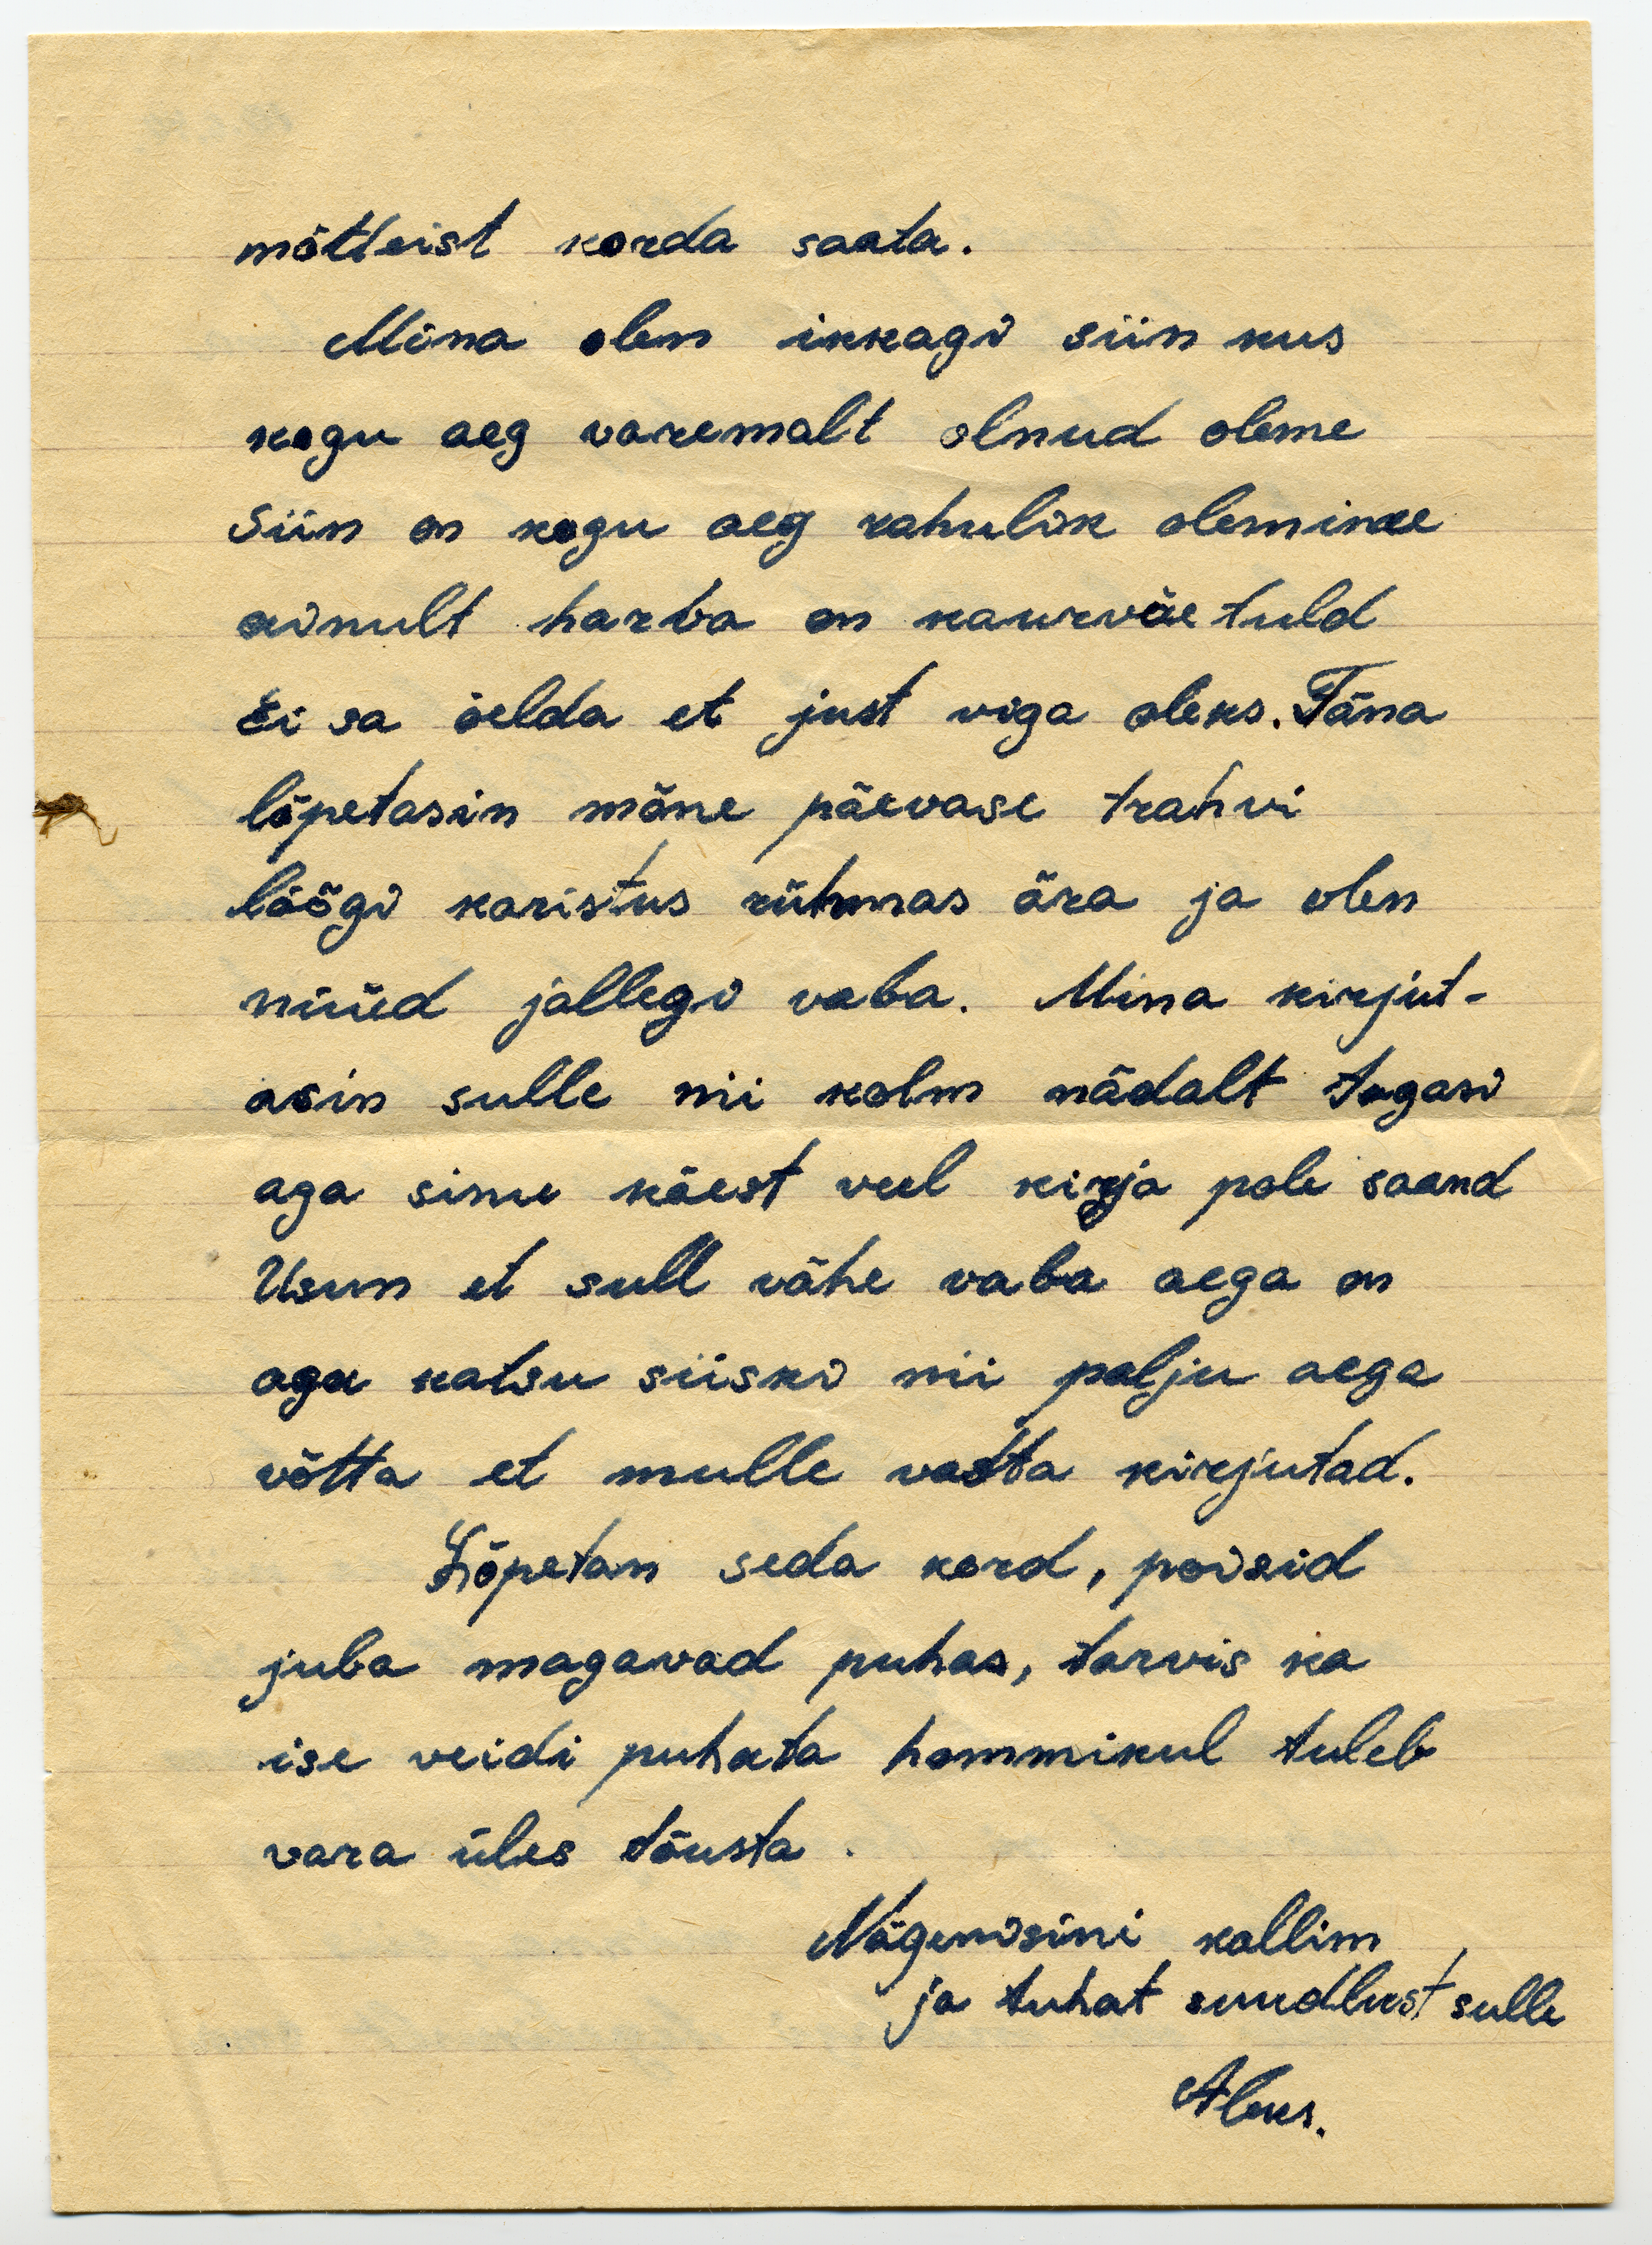 mõtteist korda saata.
Mina olen ikkagi siin kus
kogu aeg varemalt olnud oleme
Siin on kogu aeg rahulik olemine
ainult harva on kaurväe tuld
Ei sa öelda et just viga oleks. Täna
lõpetasin mõne päevase trahvi
löögi karistus rühmas ära ja olen
nüüd jallegi vaba. Mina kirjut-
asin sulle nii kolm nädalt tagasi
aga sinu käest veel kirja pole saand
Usun et sull vähe vaba aega on
aga katsu siiski nii palju aega
võtta et mulle vasta kirjutad.
Lõpetan seda kord, poisid
juba magavad puhas, tarvis ka
ise veidi puhata hommikul tuleb
vara üles tõusta.
Nägemisini kallim
ja tuhat suudlust sulle
Aleks.